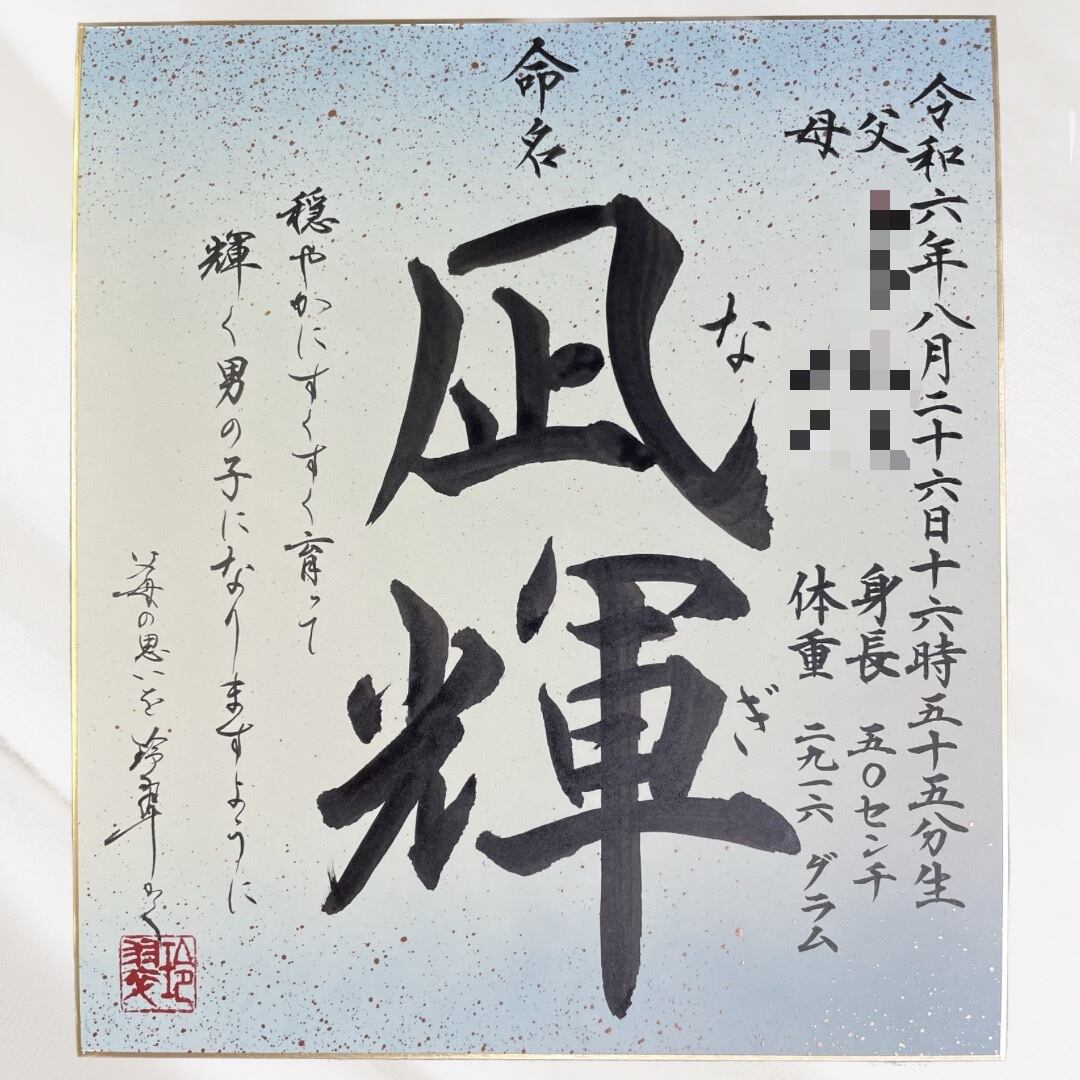 令和六年八月二十六日十六時五十五分生
父
母
身長 五〇センチ
体重 二九一六グラム
なぎ
命名
凪輝
穏やかにすくすく育って
輝く男の子になりますように
母の思いを